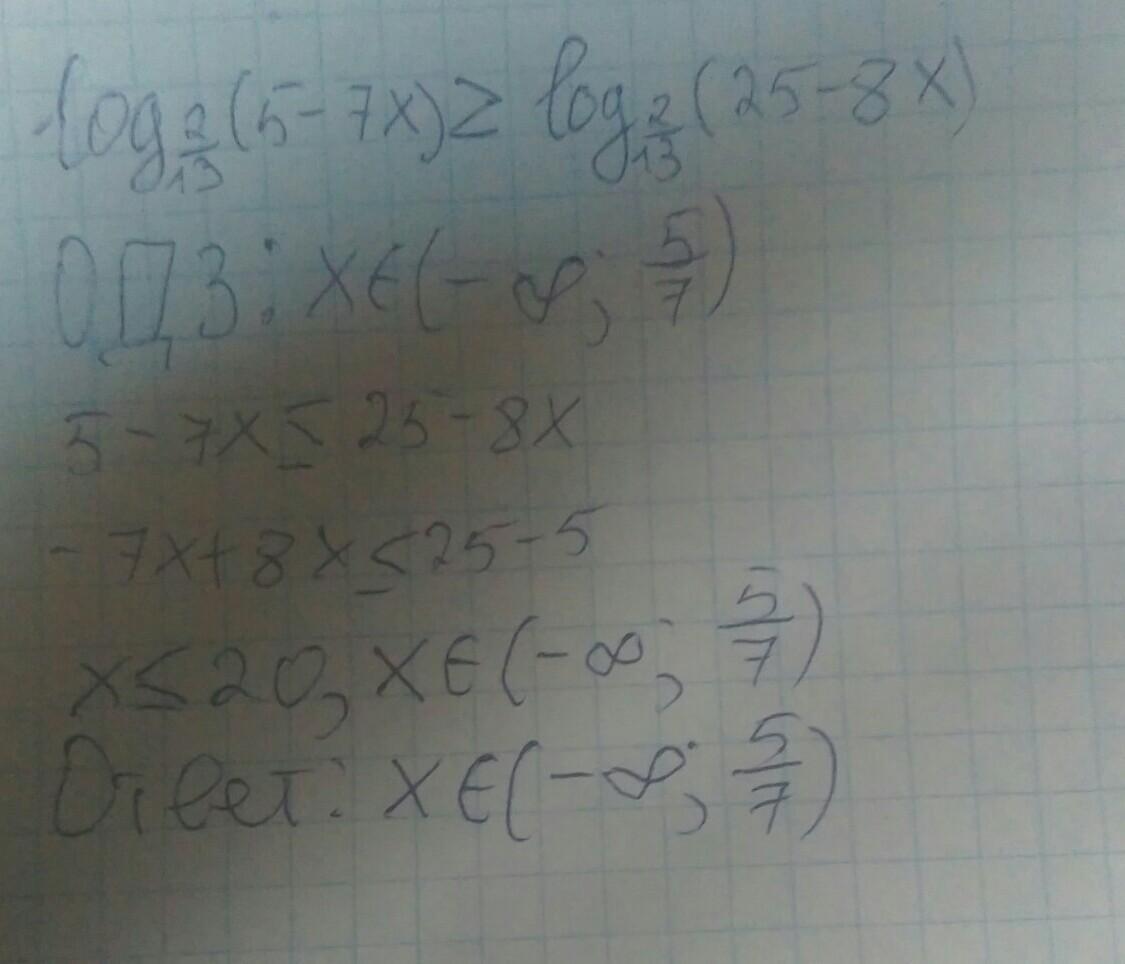 log_{2/13}(5-7x) ≥ log_{2/13}(25-8x)
ОДЗ: x∈(-∞; 5/7)
5-7x≤25-8x
-7x+8x≤25-5
x≤20, x∈(-∞; 5/7)
Ответ: x∈(-∞; 5/7)